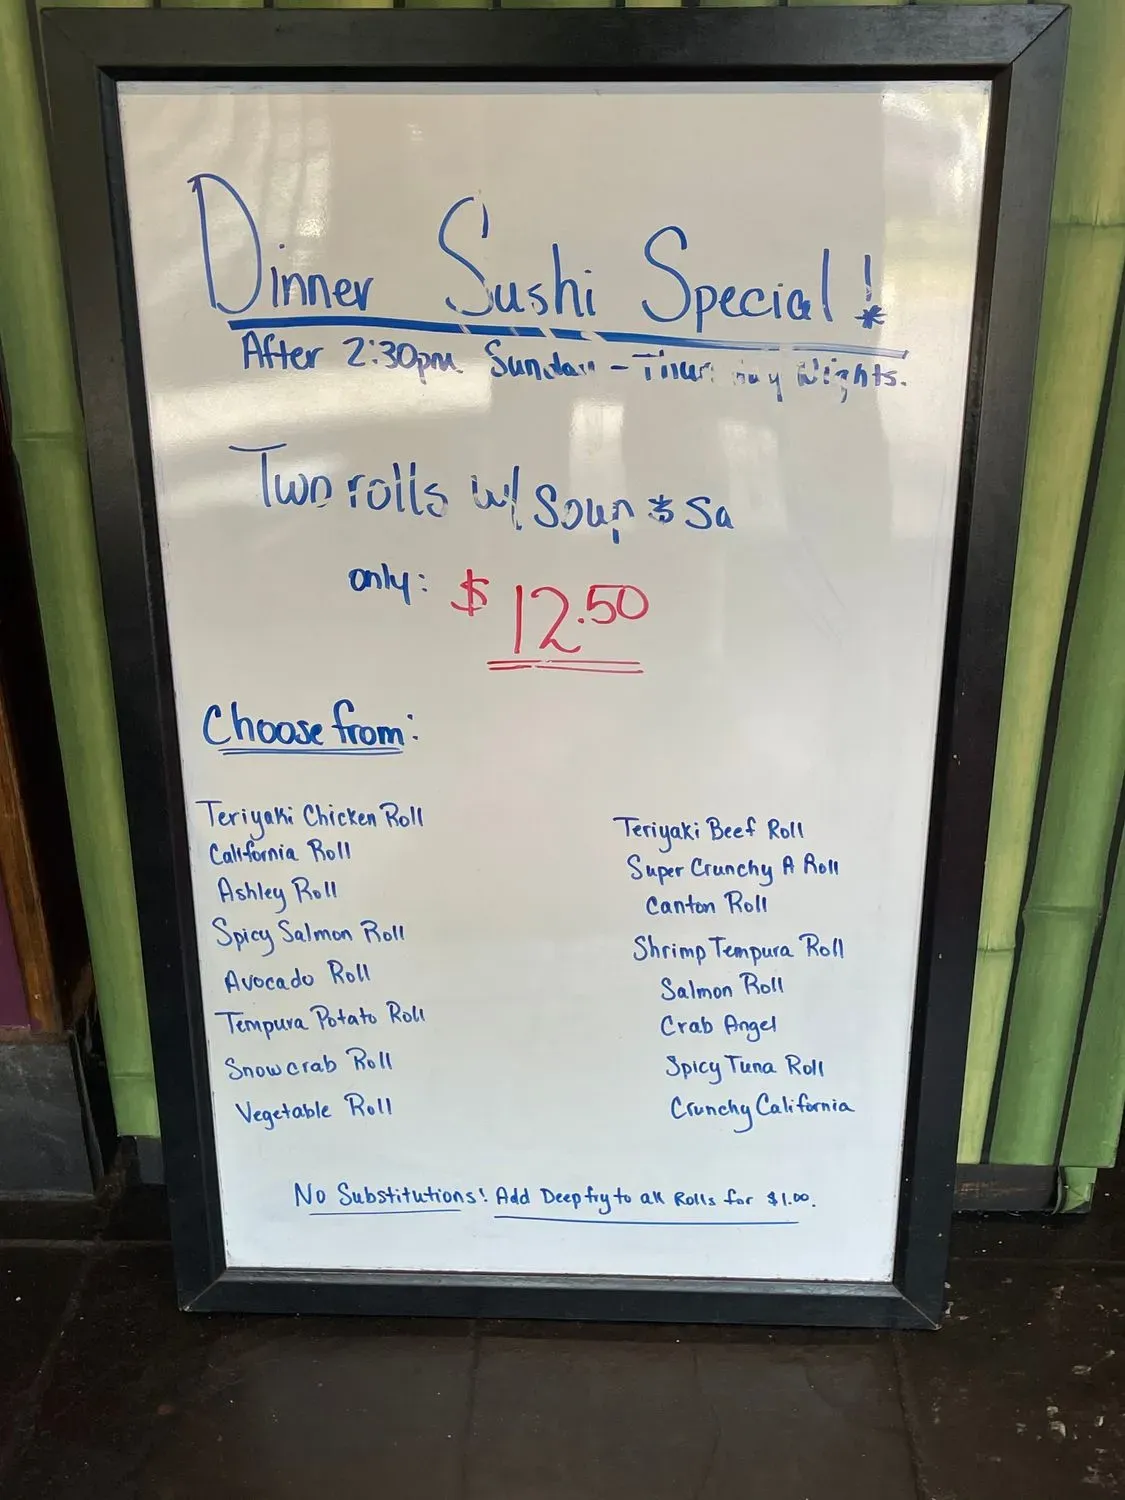 Dinner Sushi Special!
After 2:30pm Sunday - Thursday Nights.
Two rolls w/ Soup & Sa
only: $12.50
Choose from:
Teriyaki Chicken Roll
California Roll
Ashley Roll
Spicy Salmon Roll
Avocado Roll
Tempura Potato Roll
Snowcrab Roll
Vegetable Roll
Teriyaki Beef Roll
Super Crunchy A Roll
Canton Roll
Shrimp Tempura Roll
Salmon Roll
Crab Angel
Spicy Tuna Roll
Crunchy California
No Substitutions! Add Deepfry to all Rolls for $1.00.